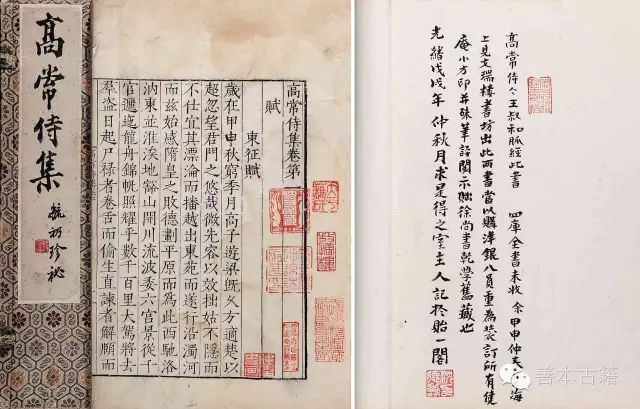 高常侍集
珍祕
高常侍集卷第一
賦
東征賦
歲在甲申秋窮季月高子遊梁旣久方適楚以
超忽望君門之悠哉微先容以效拙姑不隱而
不仕宜其漂淪而播越出東苑而遂行沿濁河
而兹始感隋皇之敗德劃平原而為此西馳洛
汭東並淮涘地豁山開川流波委六宮景從千
官邐迤龍舟錦帆照耀乎數千百里大駕將去
羣盜日起尸禄者卷舌而偷生直諫者解頤而
高常侍仝王叔和脈經此書 四庫全書未收 余甲申仲海
上見文瑞樓書坊出此两書當以購洋銀八員重為裝訂所有隻
庵小方印并硃筆評閱示徐尚書乾學舊藏也
光緒戊戌年 仲秋月求是得之室主人記於貽一閣
善本古籍